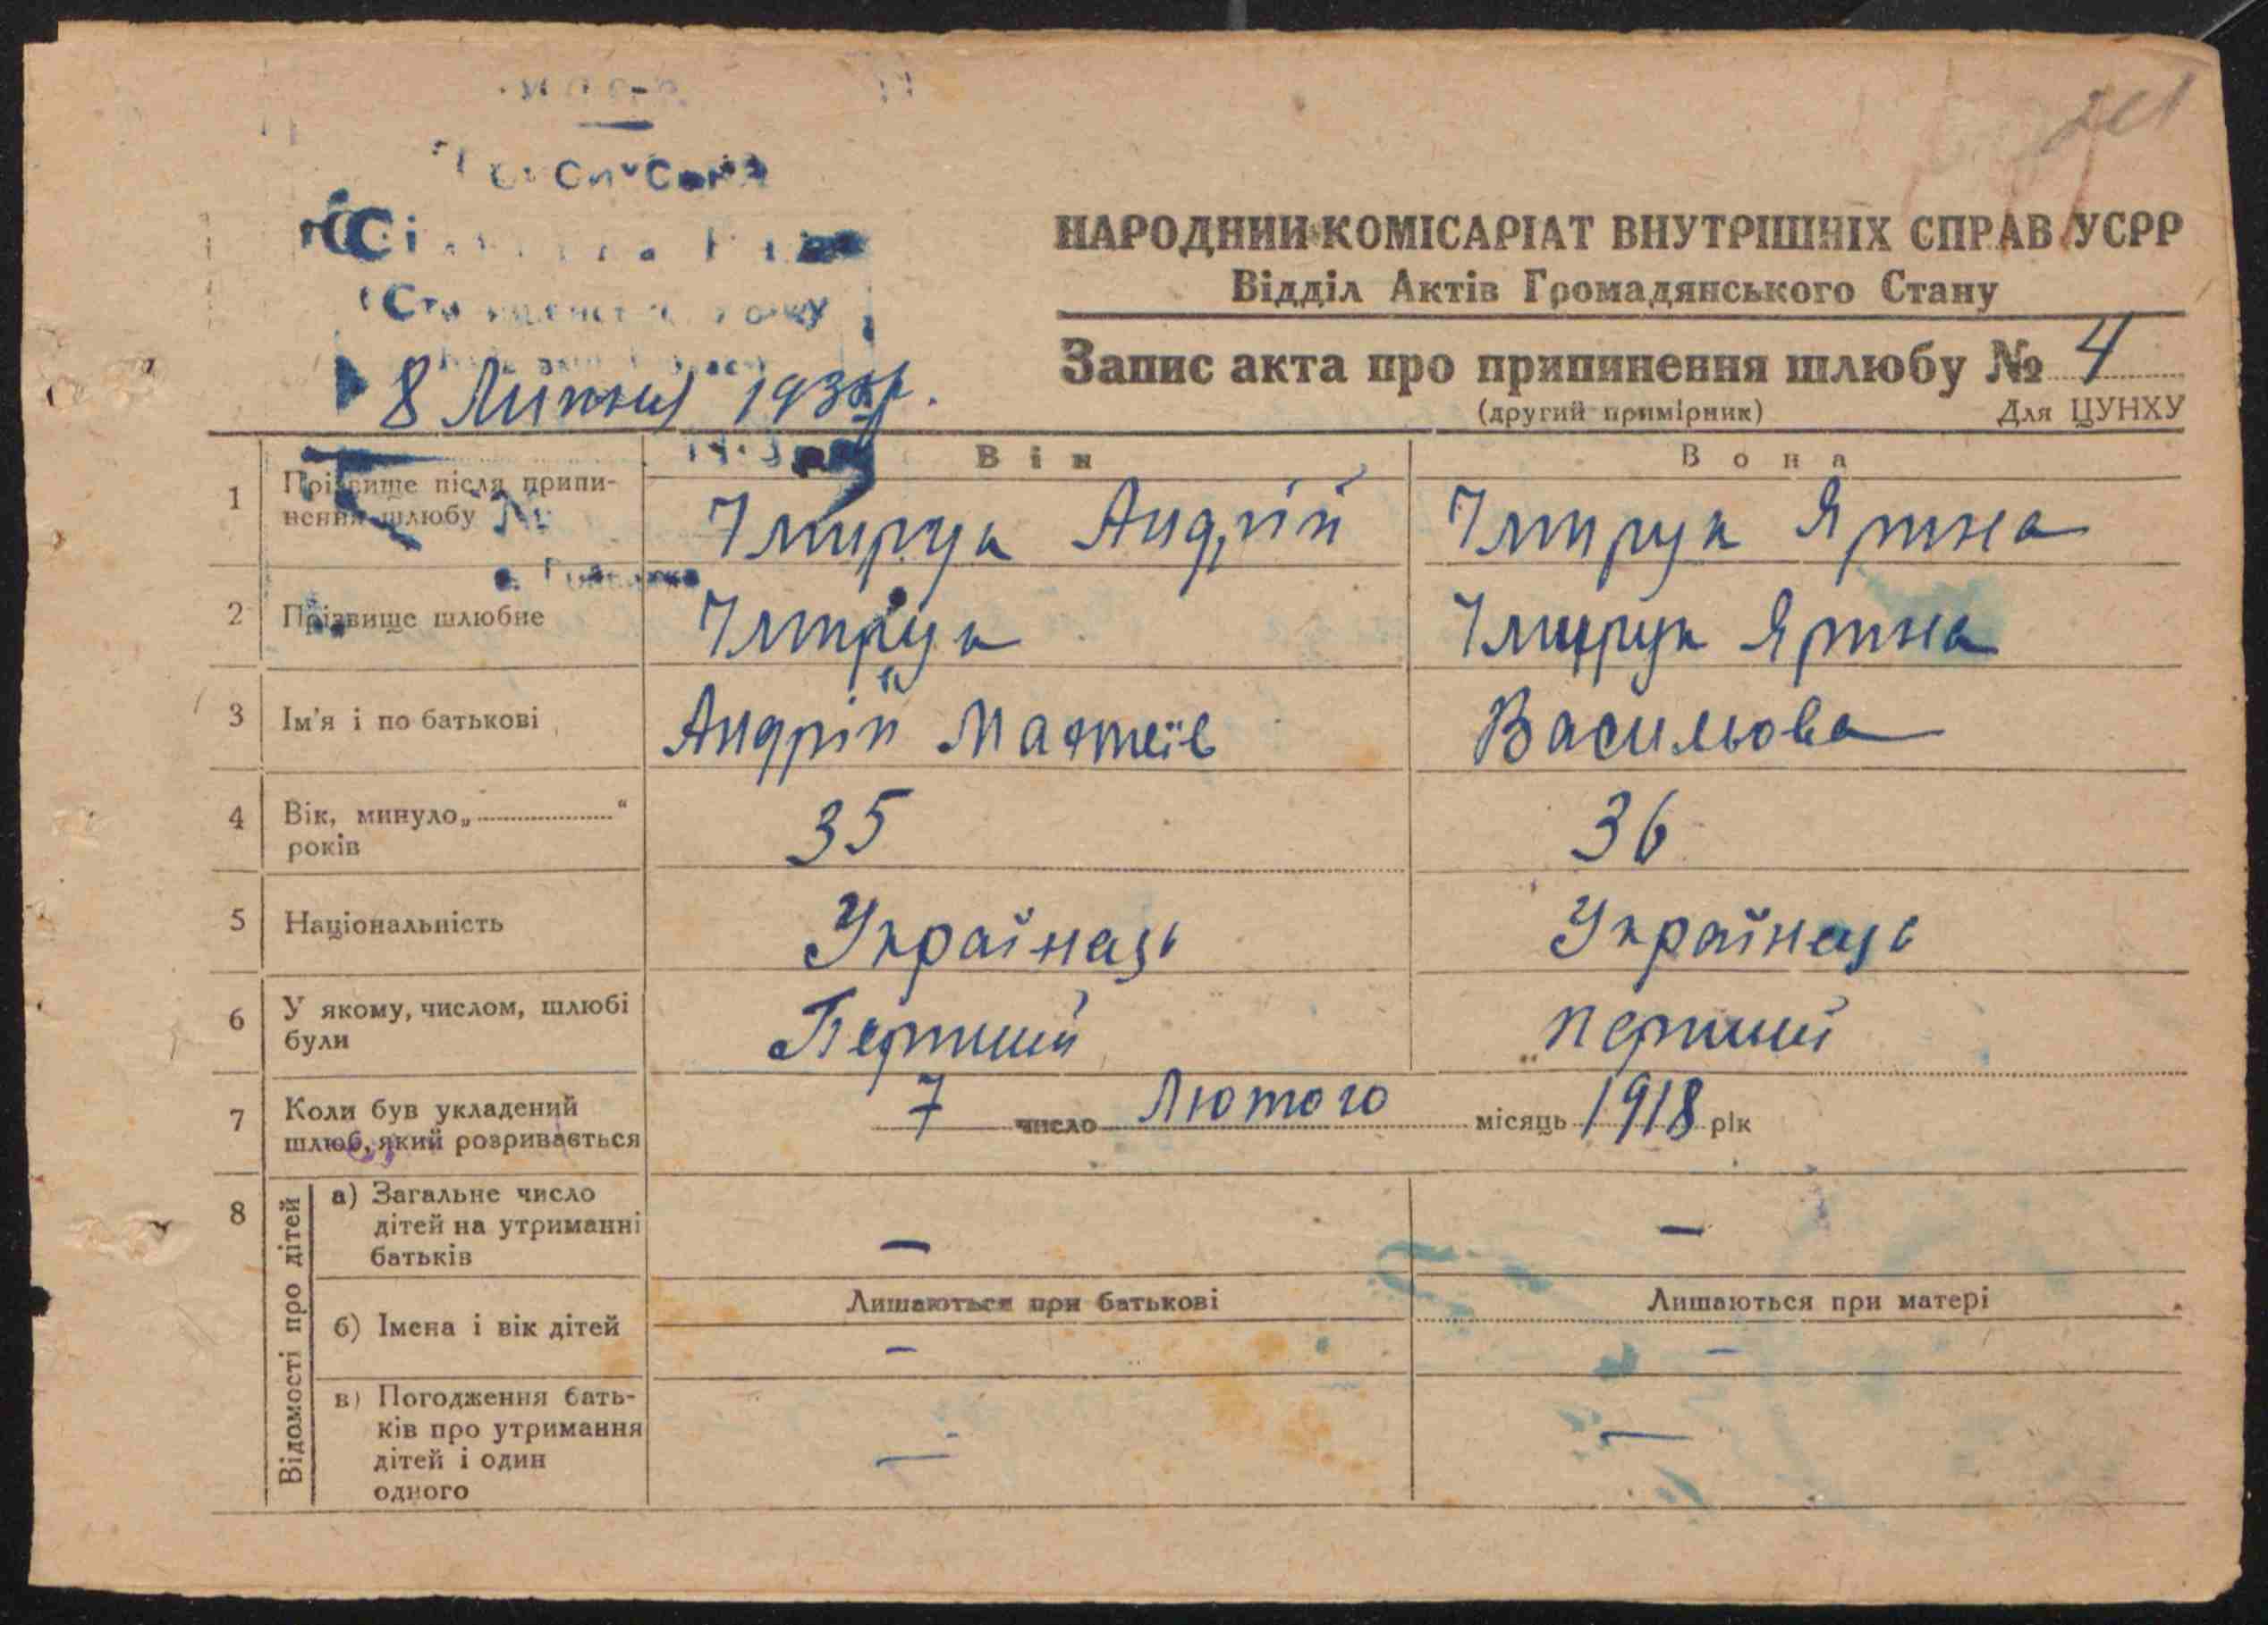 НАРОДНИЙ КОМІСАРІАТ ВНУТРІШНІХ СПРАВ УСРР
Відділ Актів Громадянського Стану
Запис акта про припинення шлюбу № 4
(другий примірник) Для ЦУНХУ
8 Липня 193
Він Вона
1 Прізвище після припи-
нення шлюбу
Ілтрук Андрій Ілтрук Ярина
2 Прізвище шлюбне Ілтрук Ілтрук Ярина
3 Ім'я і по батькові Андрій Матеїв Васильова
4 Вік, минуло „ “
років
35 36
5 Національність Українець Українець
6 У якому, числом, шлюбі
були
Перший перший
7 Коли був укладений
шлюб, який розривається
7 число Лютого місяць 1918 рік
8 Відомості про дітей
а) Загальне число
дітей на утриманні
батьків
— —
б) Імена і вік дітей
Лишаються при батькові Лишаються при матері
— —
в) Погодження бать-
ків про утримання
дітей і один
одного
— —